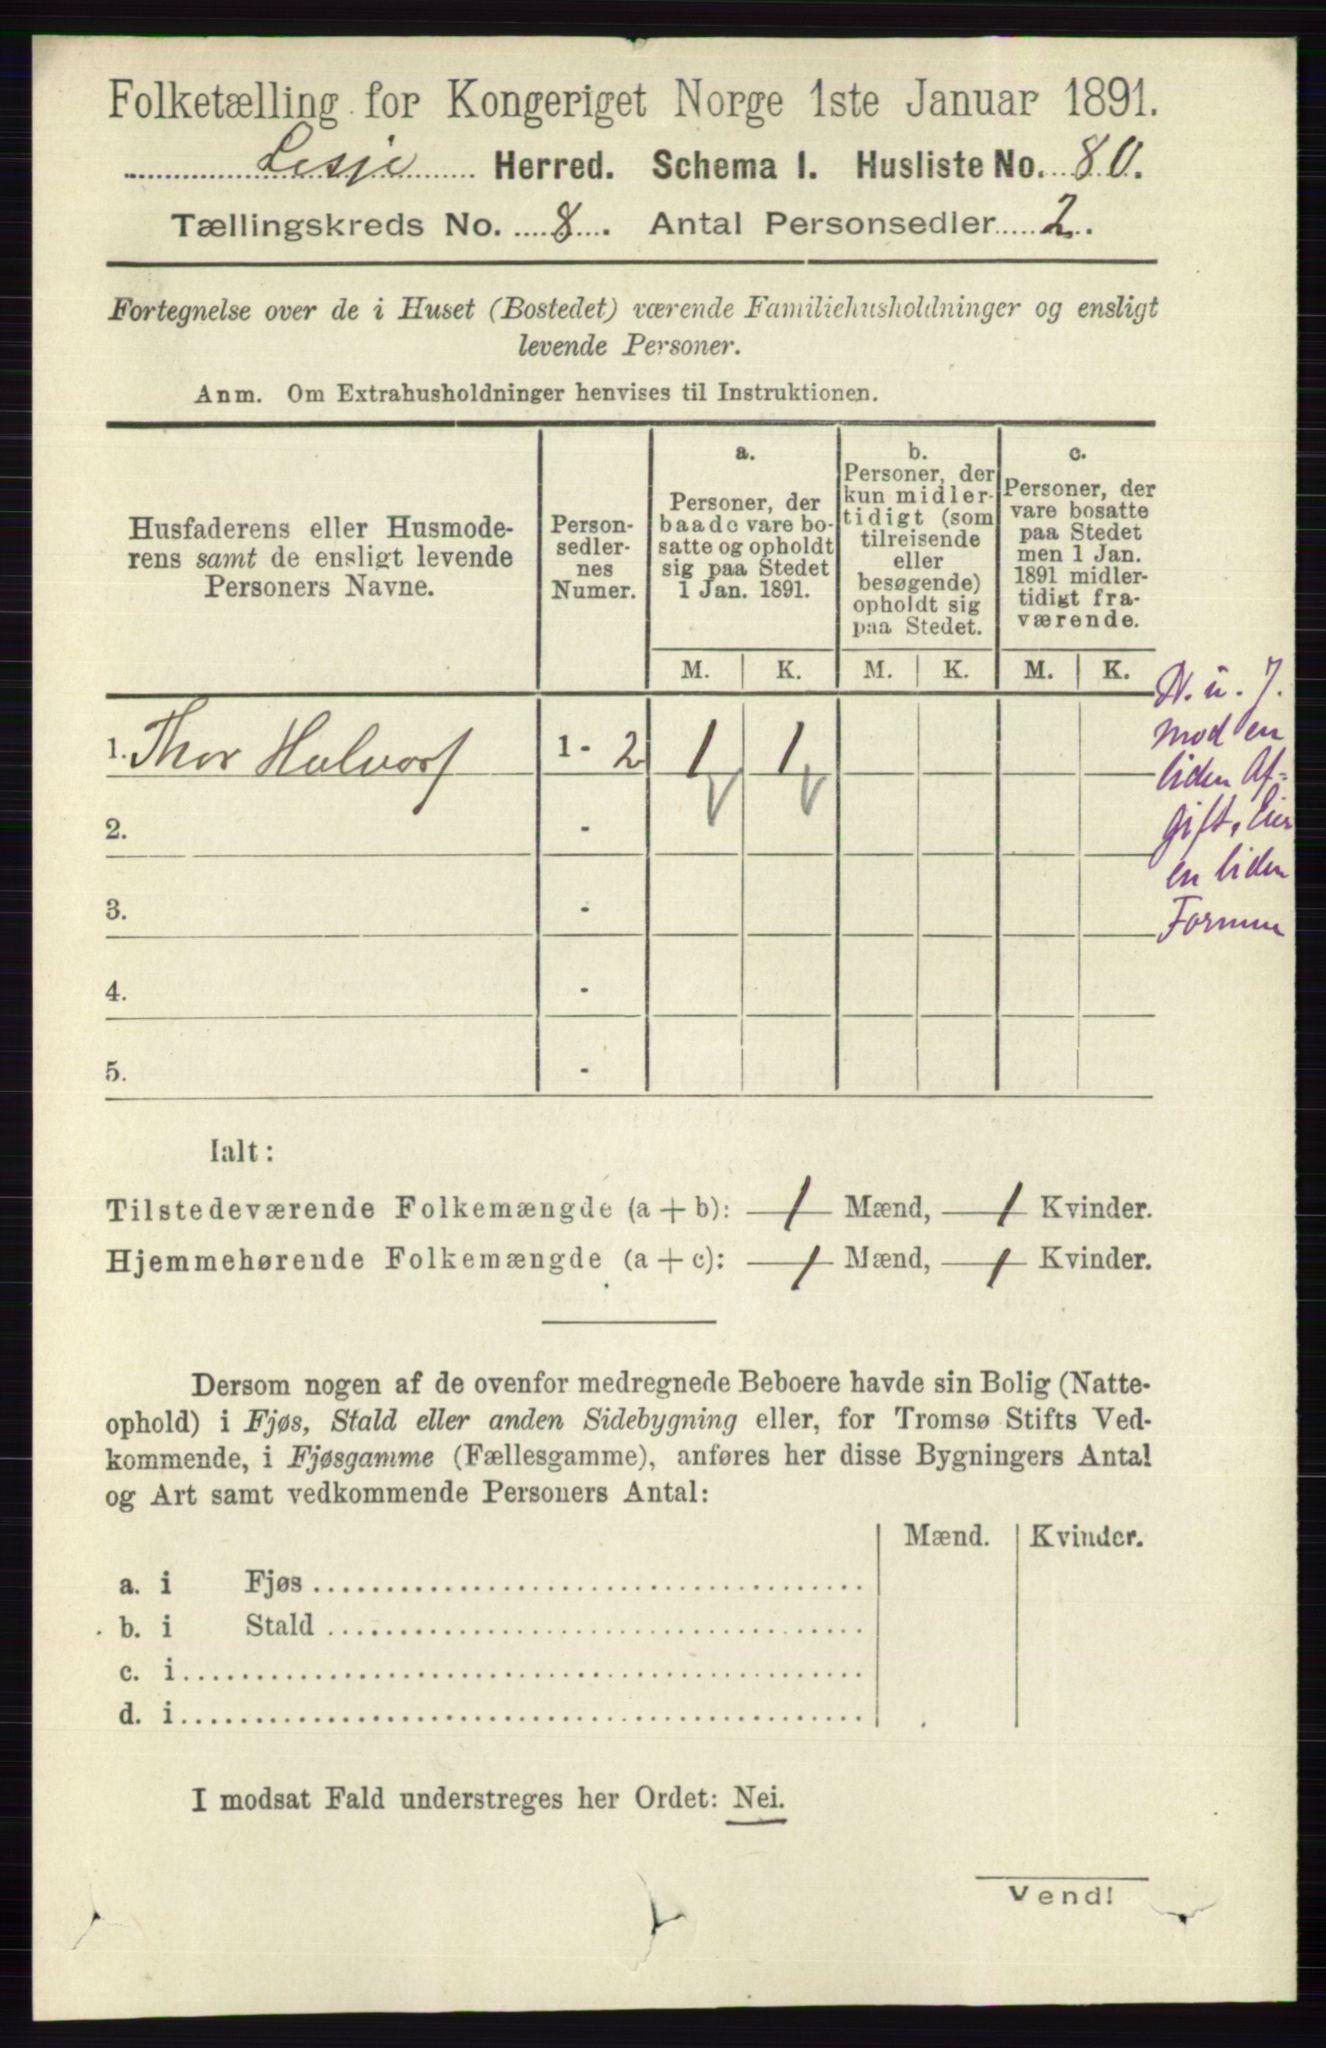 Folketælling for Kongeriget Norge 1ste Januar 1891.
Lesje Herred. Schema I. Husliste No. 80.
Tællingskreds No. 8. Antal Personsedler 2.
Fortegnelse over de i Huset (Bostedet) værende Familiehusholdninger og ensligt
levende Personer.
Anm. Om Extrahusholdninger henvises til Instruktionen.
Husfaderens eller Husmode-
rens samt de ensligt levende
Personers Navne.
Person-
sedler-
nes
Numer.
a.
Personer, der
baade vare bo-
satte og opholdt
sig paa Stedet
1 Jan. 1891.
b.
Personer, der
kun midler-
tidigt (som
tilreisende
eller
besøgende)
opholdt sig
paa Stedet.
c.
Personer, der
vare bosatte
paa Stedet
men 1 Jan.
1891 midler-
tidigt fra-
værende.
M. K. M. K. M. K.
1. Thor Halvors 1 - 2 1 1
2. -
3. -
4. -
5. -
N. u. 7.
mod en
liden Af-
gift, Eier
en liden
Formue
Ialt:
Tilstedeværende Folkemængde (a + b): 1 Mænd, 1 Kvinder.
Hjemmehørende Folkemængde (a + c): 1 Mænd, 1 Kvinder.
Dersom nogen af de ovenfor medregnede Beboere havde sin Bolig (Natte-
ophold) i Fjøs, Stald eller anden Sidebygning eller, for Tromsø Stifts Ved-
kommende, i Fjøsgamme (Fællesgamme), anføres her disse Bygningers Antal
og Art samt vedkommende Personers Antal:
Mænd. Kvinder.
a. i Fjøs
b. i Stald
c. i
d. i
I modsat Fald understreges her Ordet: Nei.
Vend!